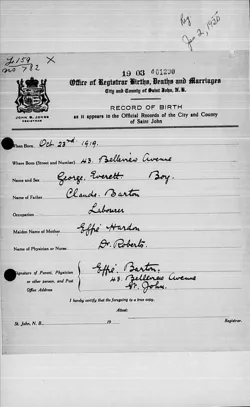 Reg
Jan 2, 1920
L 159 X
no 782
19 03 001230
Office of Registrar Births, Deaths and Marriages
City and County of Saint John, N. B.
RECORD OF BIRTH
as it appears in the Official Records of the City and County
of Saint John
JOHN B. JONES
REGISTRAR
When Born Oct 23rd 1919.
Where Born (Street and Number) 43 Bellevue Avenue
Name and Sex George Everett Boy.
Name of Father Claude Barton
Occupation Labourer
Maiden Name of Mother Effie Hardon
Name of Physician or Nurse Dr Roberts.
Signature of Parent, Physician
or other person, and Post
Office Address
Effie Barton.
43 Bellevue Avenue
St. John.
I hereby certify that the foregoing is a true entry.
St. John, N. B., 19 Registrar.